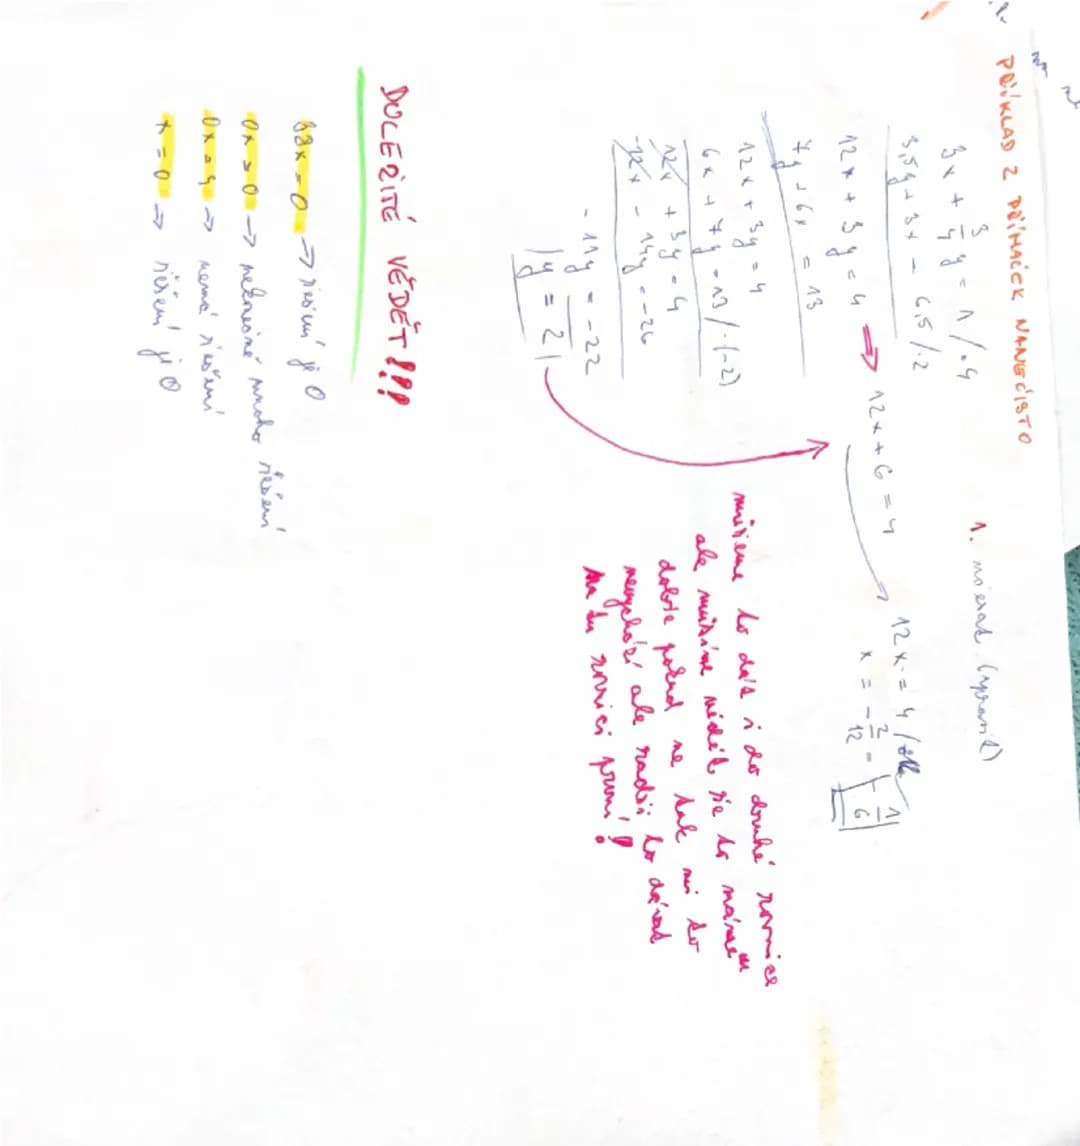 PŘÍKLAD Z PŘÍMAČEK NANEČISTO
1. násobit (vynásit)
3x + 3/4 y = 1 / ·4
3,5y + 3x = 6,5 / ·2
12x + 3y = 4 ⇒ 12x + 6 = 4
12x = 4 /
x = - 2/12 = - 1/6
7y + 6x = 13
12x + 3y = 4
6x + 7y = 13 / ·(-2)
12x + 3y = 4
-12x - 14y = -26
-11y = -22
y = 2
můžeme to dát i do druhé rovnice
ale musíme vědět že to máme
dobře pokud ne tak mi to
nevychází ale radši to dávat
na tu rovnici první!
DŮLEŽITÉ VĚDĚT!!!
68x = 0 → řešení je 0
0x = 0 → nekonečně mnoho řešení
0x = 4 → nemá řešení
x = 0 → řešení je 0